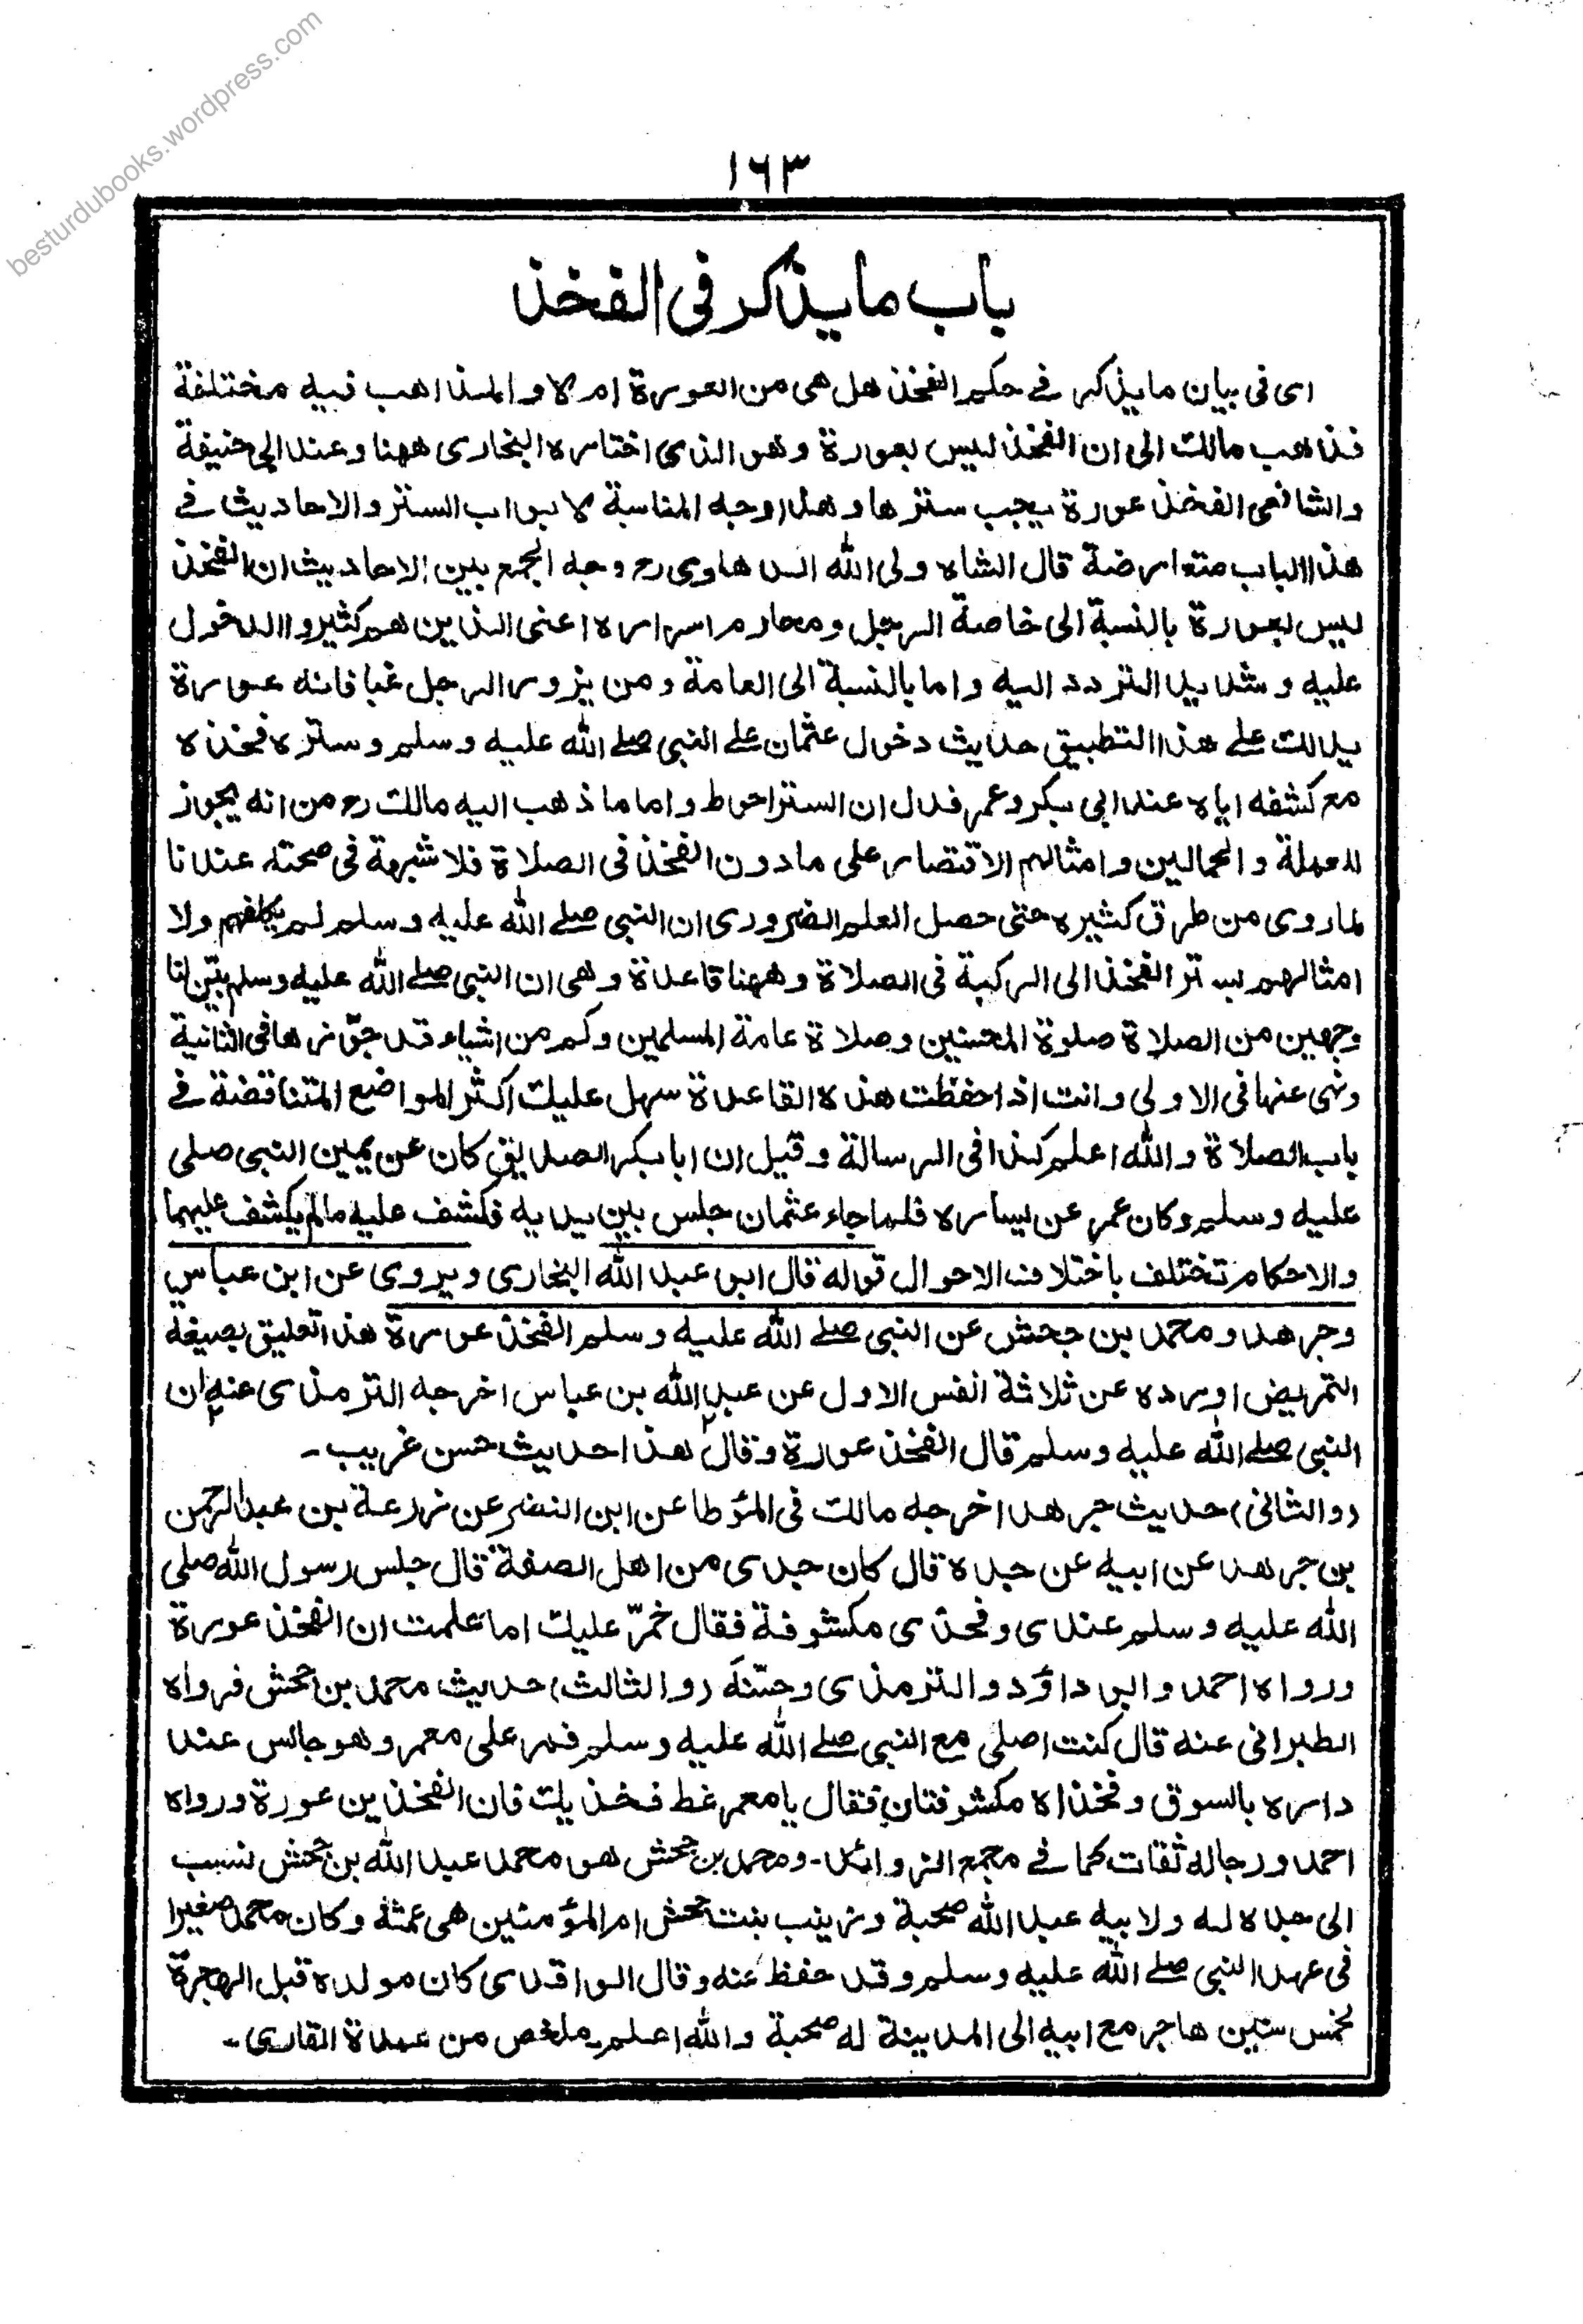 besturdubooks.wordpress.com
١٦٣
باب ما يذكر فى الفخذ
اى فى بيان ما يذكر فے حكم الفخذ هل هى من العورة ام لا والمذاهب فيه مختلفة
فذهب مالك الى ان الفخذ ليس بعورة وهو الذى اختاره البخارى ههنا وعند ابى حنيفة
والشافعى الفخذ عورة يجب سترها وهذا وجه المناسبة لابواب الستر والاحاديث فے
هذا الباب متعارضة قال الشاه ولى الله الدهلوى رح وجه الجمع بين الاحاديث ان الفخذ
ليس بعورة بالنسبة الى خاصة الرجل ومحارم اسراره اعنى الذين هم كثيروا الدخول
عليه وشديد التردد اليه واما بالنسبة الى العامة ومن يزور الرجل غبا فانه عورة
يدلك علے هذا التطبيق حديث دخول عثمان علے النبى صلے الله عليه وسلم وستره فخذه
مع كشفه اياه عند ابى بكر وعمر فدل ان الستر احوط واما ما ذهب اليه مالك رح من انه يجوز
للعملة والحمالين وامثالهم الاقتصار على ما دون الفخذ فى الصلاة فلا شبهة فى صحته عندنا
لما روى من طرق كثيره حتى حصل العلم الضرورى ان النبى صلے الله عليه وسلم لم يكلفهم ولا
امثالهم بستر الفخذ الى الركبة فى الصلاة وههنا قاعدة وهى ان النبى صلے الله عليه وسلم بيّن لنا
وجهين من الصلاة صلوة المحسنين وصلاة عامة المسلمين وكم من اشياء قد جوّزها فى الثانية
ونهى عنها فى الاولى وانت اذا حفظت هذه القاعدة سهل عليك اكثر المواضع المتناقضة فے
باب الصلاة والله اعلم كذا فى الرسالة وقيل ان ابا بكر الصديق كان عن يمين النبى صلى
عليه وسلم وكان عمر عن يساره فلما جاء عثمان جلس بين يديه فكشف عليه ما لم يكشف عليهما
والاحكام تختلف باختلاف الاحوال قوله قال ابو عبد الله البخارى ويروى عن ابن عباس
وجرهد ومحمد بن جحش عن النبى صلے الله عليه وسلم الفخذ عورة هذا تعليق بصيغه
التمريض اورده عن ثلاثة انفس الاول عن عبد الله بن عباس اخرجه الترمذى عنه ان
النبى صلے الله عليه وسلم قال الفخذ عورة وقال هذا حديث حسن غريب۔
(والثانى) حديث جرهد اخرجه مالك فى المؤطا عن ابن النضر عن زرعة بن عبد الرحمن
بن جرهد عن ابيه عن جده قال كان جدى من اهل الصفة قال جلس رسول الله صلى
الله عليه وسلم عندى وفخذى مكشوفة فقال خمّر عليك اما علمت ان الفخذ عورة
ورواه احمد وابو داؤد والترمذى وحسّنه (والثالث) حديث محمد بن جحش فرواه
الطبرانى عنه قال كنت اصلى مع النبى صلے الله عليه وسلم فمر على معمر وهو جالس عند
داره بالسوق وفخذاه مكشوفتان فقال يا معمر غط فخذيك فان الفخذين عورة ورواه
احمد ورجاله ثقات كما فے مجمع الزوائد۔ ومحمد بن جحش هو محمد عبد الله بن جحش نسب
الى جده له ولابيه عبد الله صحبة وزينب بنت جحش ام المؤمنين هى عمته وكان محمد صغيرا
فى عهد النبى صلے الله عليه وسلم وقد حفظ عنه وقال الواقدى كان مولده قبل الهجرة
بخمس سنين هاجر مع ابيه الى المدينة له صحبة والله اعلم۔ ملخص من عمدة القارى۔